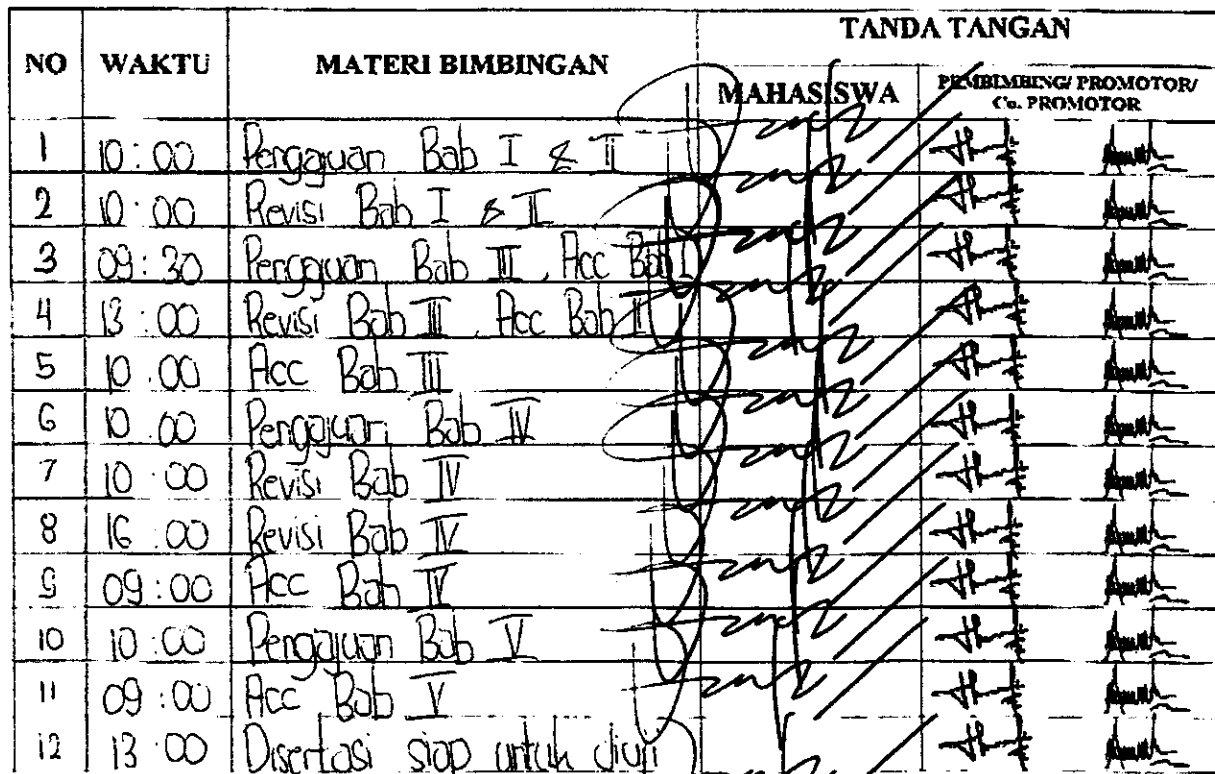 TANDA TANGAN
NO WAKTU MATERI BIMBINGAN
MAHASISWA PEMBIMBING/ PROMOTOR/
Co. PROMOTOR
1 10:00 Pengajuan Bab I & II
2 10:00 Revisi Bab I & II
3 09:30 Pengajuan Bab III, Acc Bab I
4 13:00 Revisi Bab III, Acc Bab II
5 10:00 Acc Bab III
6 10:00 Pengajuan Bab IV
7 10:00 Revisi Bab IV
8 16:00 Revisi Bab IV
9 09:00 Acc Bab IV
10 10:00 Pengajuan Bab V
11 09:00 Acc Bab V
12 13:00 Disertasi siap untuk diuji